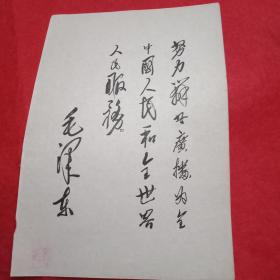 努力办好廣播为全
中國人民和全世界
人民服務。
毛澤东